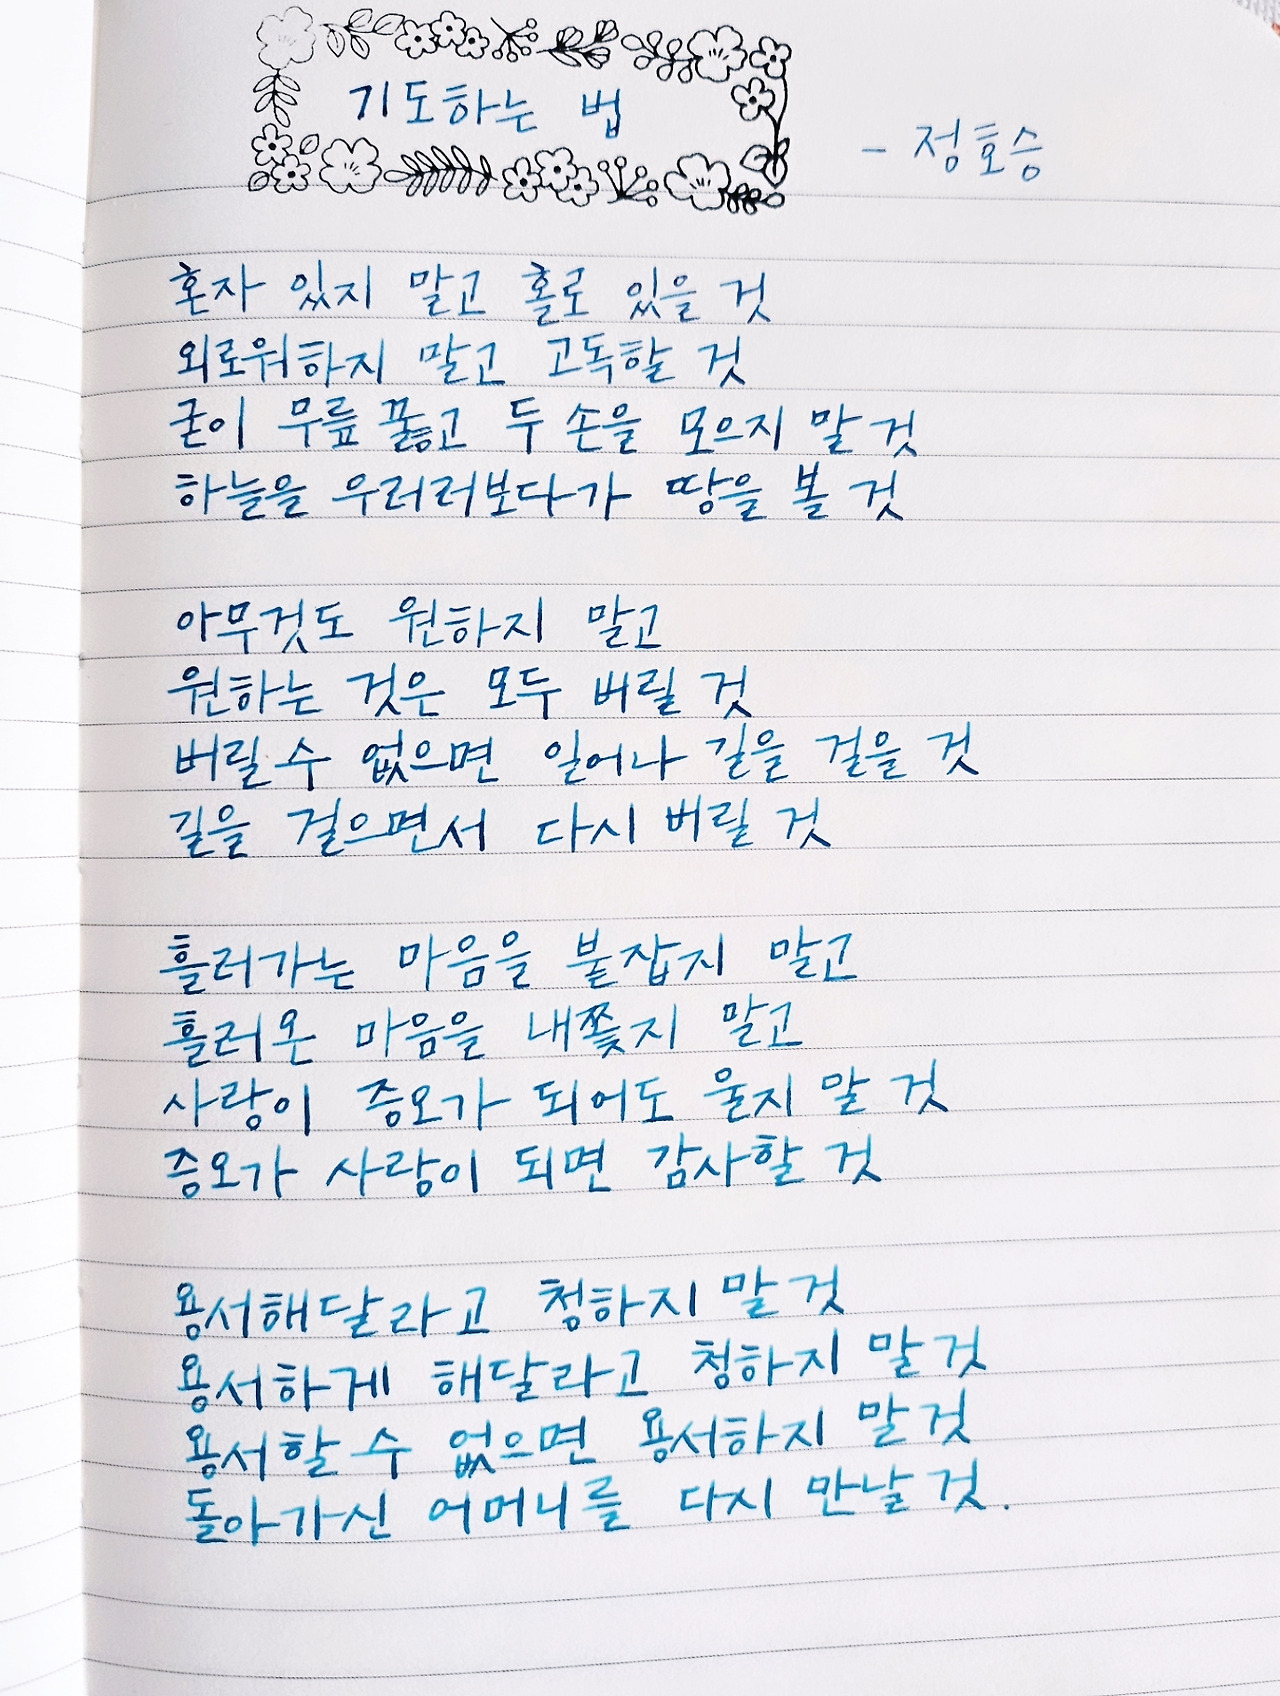 기도하는 법
- 정호승
혼자 있지 말고 홀로 있을 것
외로워하지 말고 고독할 것
굳이 무릎 꿇고 두 손을 모으지 말 것
하늘을 우러러보다가 땅을 볼 것
아무것도 원하지 말고
원하는 것은 모두 버릴 것
버릴 수 없으면 일어나 길을 걸을 것
길을 걸으면서 다시 버릴 것
흘러가는 마음을 붙잡지 말고
흘러온 마음을 내쫓지 말고
사랑이 증오가 되어도 울지 말 것
증오가 사랑이 되면 감사할 것
용서해달라고 청하지 말 것
용서하게 해달라고 청하지 말 것
용서할 수 없으면 용서하지 말 것
돌아가신 어머니를 다시 만날 것.